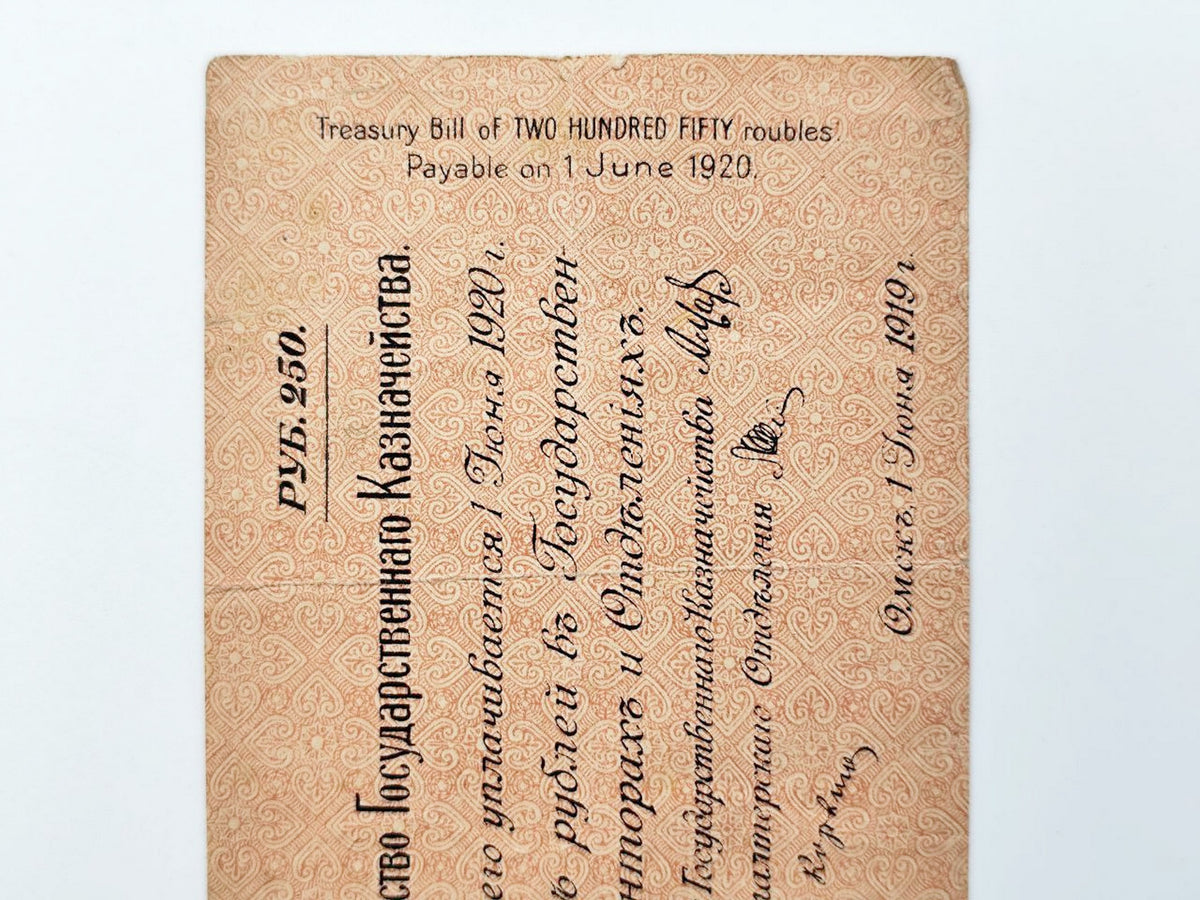 Treasury Bill of TWO HUNDRED FIFTY roubles.
Payable on 1 June 1920.
РУБ. 250.
ство Государственнаго Казначейства.
его уплачивается 1 Іюня 1920 г.
ъ рублей въ Государствен-
нторахъ и Отдѣленіяхъ.
Государственнаго Казначейства
алтерскаго Отдѣленія
Омскъ, 1 Іюня 1919 г.